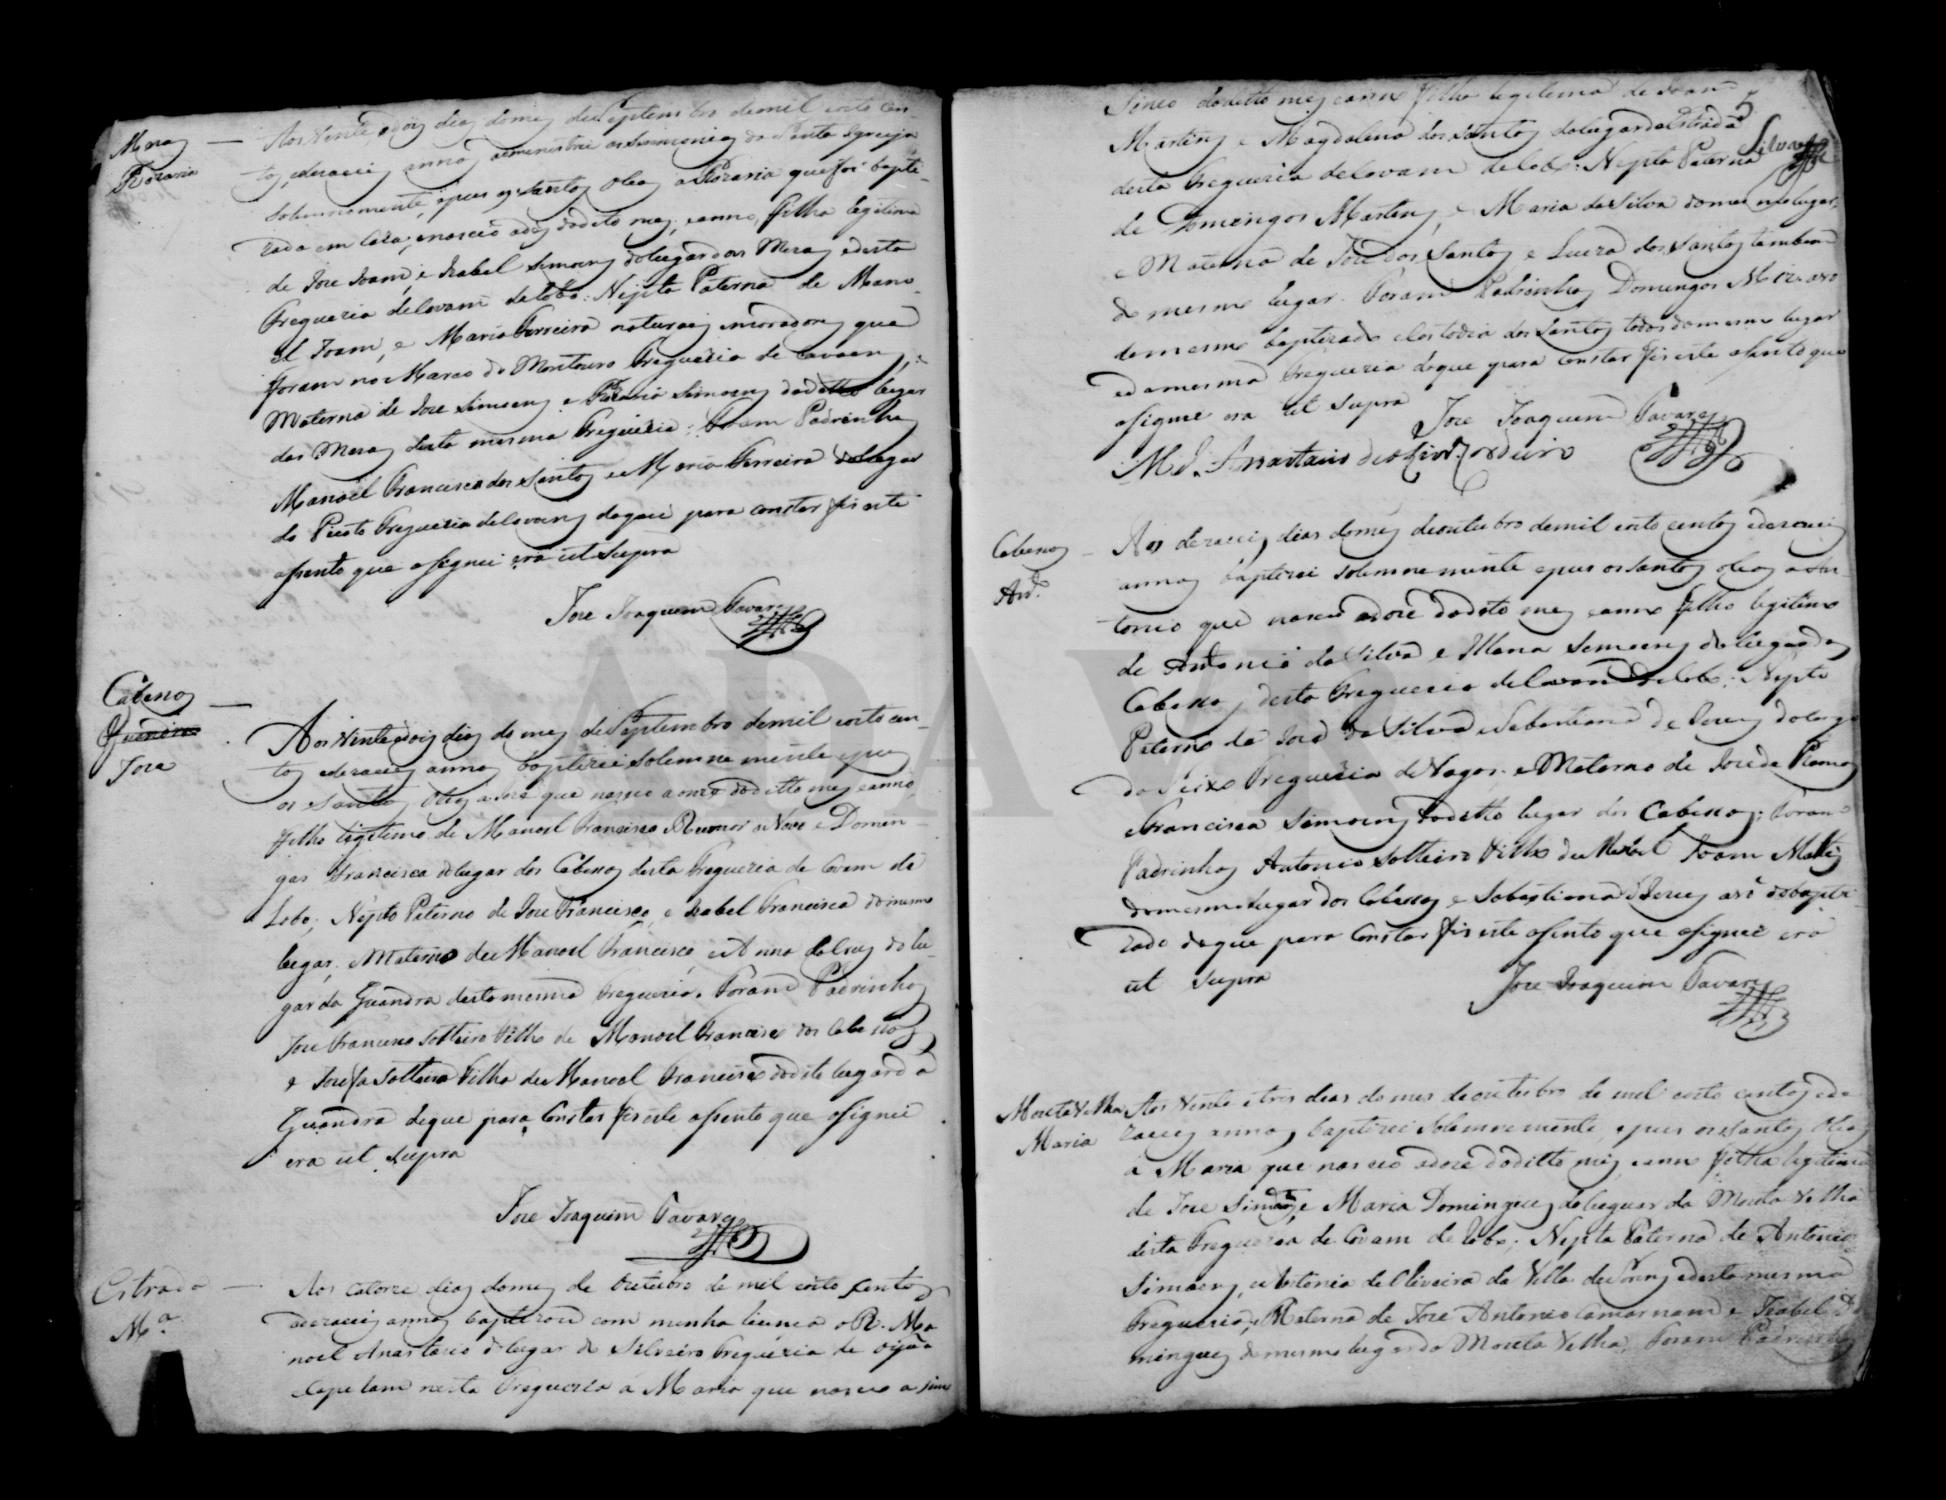 Mesas
Rozaria
Aos vinte, e dois dias do mes de Septembro de mil oito cen-
tos, e dezaceis annos administrei as sirimonias da Santa Igreja
solemnemente, e pus os Santos Oleos a Rozaria que foi bapti-
zada em Caza, e nasceo a dodito mes, e anno, filha legitima
de Joze Joam, e Izabel Simoens do lugar das Mesas desta
Freguezia de Covam de Lobo: Nepta Paterna de Mano-
el Joam, e Maria Ferreira naturais e moradores que
foram no Marco do Montouro Freguezia de Covoens, e
Materna de Joze Simoens e Rozaria Simoens do ditto lugar
das Mesas desta mesma Freguezia: Foram Padrinhos
Manoel Francisco dos Santos e Maria Ferreira do lugar
do Freguezia de Covoens de que para constar fis este
asento que asignei era ut Supra
Joze Joaquim Tavares
Cabesos
Joze
Aos vinte e dois dias do mes de Septembro de mil oito cen-
tos e dezaceis annos baptizei Solemnemente e pus
os Santos Oleos a Joze que nasceo a onze do ditto mes e anno
filho legitimo de Manoel Francisco o Novo e Domin-
gas Francisca do lugar dos Cabesos desta Freguezia de Covam de
Lobo; Nepto Paterno de Joze Francisco, e Izabel Francisca do mesmo
lugar, e Materno de Manoel Francisco, e Anna da Cruz do lu-
gar da Guandra desta mesma Freguezia. Foram Padrinhos
Joze Francisco Solteiro Filho de Manoel Francisco dos Cabesos,
e Josefa Solteira Filha de Manoel Francisco do dito lugar da
Guandra de que para Constar fis este asento que asignei
era ut Supra
Joze Joaquim Tavares
Estrada
Ma.
Aos catorze dias do mes de Outubro de mil oito centos
dezaceis annos baptizou com minha licença o R. Ma
noel Anastacio do lugar de Silveiro Freguezia de Oyãa
Capelam nesta Freguezia a Maria que nasceo a sinco
Sinco do ditto mes e anno filha legitima de Joam
5
Silva
Martins e Magdalena dos Santos do lugar da Estrada
desta Freguezia de Covam de Lobo: Nepta Paterna
de Domingos Martins, e Maria da Silva do mesmo lugar,
e Materna de Joze dos Santos e Luiza dos Santos tambem
do mesmo lugar. Foram Padrinhos Domingos
da mesma baptizada e Custodia dos Santos todos do mesmo lugar
e da mesma Freguezia de que para Constar fis este asento que
asignei era ut Supra
Joze Joaquim Tavares
Cabesos
Anto.
Aos dezaceis dias do mes de Outubro de mil oito centos e dezaceis
annos baptizei Solemnemente e pus os Santos Oleos a An-
tonio que nasceo a doze do dito mes e anno filho legitimo
de Antonio da Silva e Maria Simoens do lugar dos
Cabesos, desta Freguezia de Covam de Lobo: Nepto
Paterno de Joze da Silva e Sebastiana de Jezus do lugar
do Seixo Freguezia de Vagos: e Materno de Joze de Ramos
e Francisca Simoens do ditto lugar dos Cabesos; Foram
Padrinhos Antonio Solteiro Filho de Manoel Joam
do mesmo lugar dos Cabesos, e Sebastiana de Jezus avó do bapti
zado de que para Constar fis este asento que asignei era
ut Supra
Joze Joaquim Tavares
Mouta Velha
Maria
Aos vinte e tres dias do mes de Outubro de mil oito centos e de
zaceis annos, baptizei Solemnemente, e pus os Santos Oleos
a Maria que nasceo a doze do ditto mes, e anno filha legitima
de Joze Simoens, e Maria Domingues do lugar da Mouta Velha
desta Freguezia de Covam de Lobo; Nepta Paterna de Antonio
Simoens, e Antonia de Oliveira da Villa de Soza, e desta mesma
Freguezia, e Materna de Joze Antonio e Izabel Do
mingues do mesmo lugar da Mouta Velha; Foram Padrinhos
ADAVR